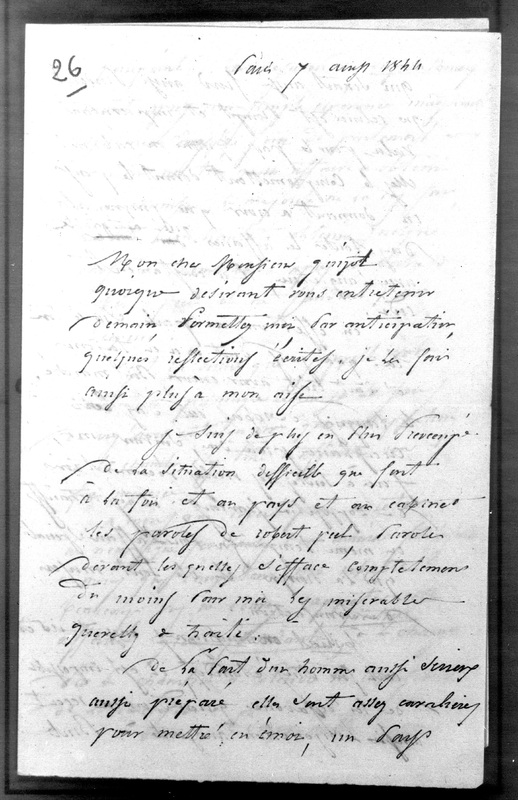 26
Paris 7 aoust 1844
Mon cher Monsieur guizot
quoique désirant vous entretenir
demain permettez moi par anticipation
quelques reflections écrites. je le fais
ainsi plus a mon aise
je suis de plus en plus préoccupé
de la situation difficile que font
à la fois et au pays et au cabinet
les paroles de robert peel parole
devant les quelles s'efface completement
du moins pour moi les miserable
querelles d haïti.
de la part d'un homme aussi serieux
aussi préparé elles sont assez cavalieres
pour mettre en émoi, un pays